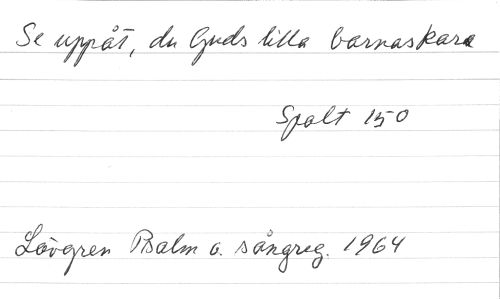 Se uppåt, du Guds lilla barnaskara
Spalt 150
Lövgren Psalm o. sångreg. 1964